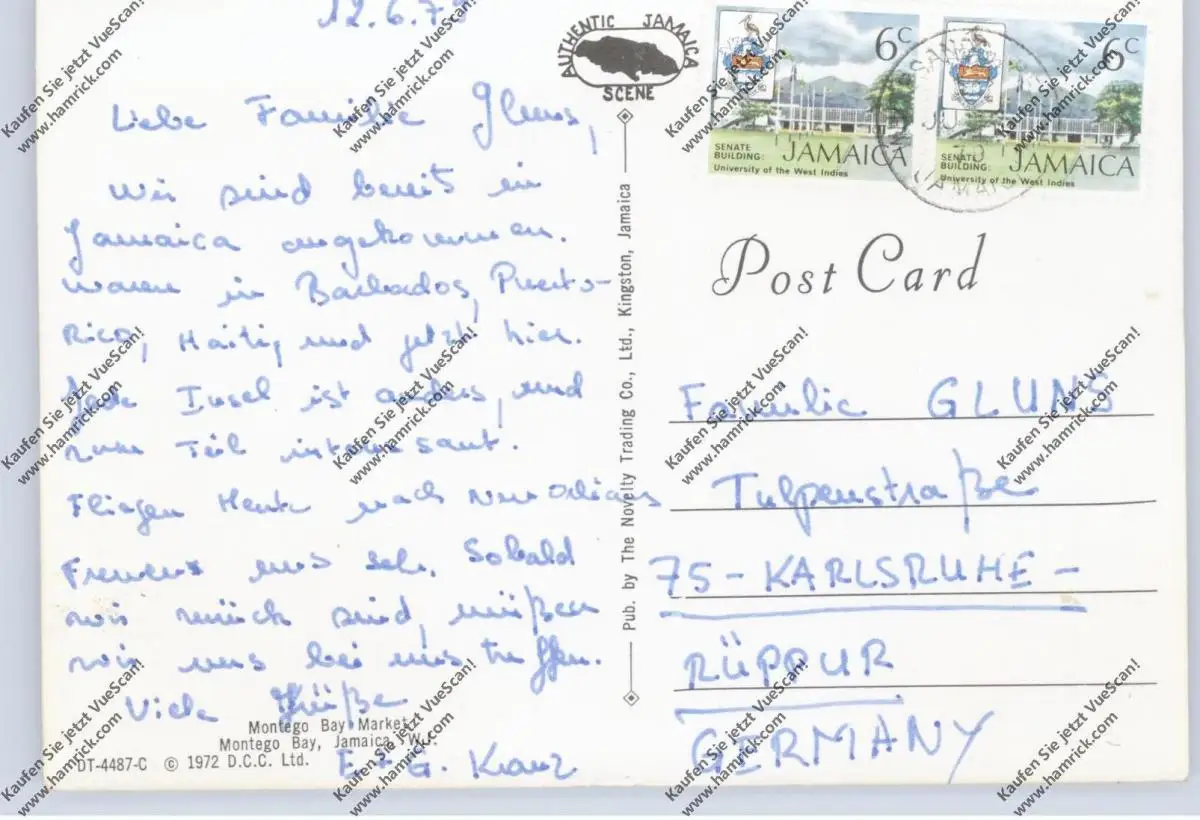 12.6.73
AUTHENTIC JAMAICA
SCENE
6c
SENATE
BUILDING: JAMAICA
University of the West Indies
6c
SENATE
BUILDING: JAMAICA
University of the West Indies
JAMAICA
Liebe Familie Gluns,
wir sind bereits in
Jamaica angekommen.
waren in Barbados, Puerto-
Rico, Haiti, und jetzt hier.
Jede Insel ist anders, und
zum Teil interessant.
Fliegen Heute nach New Orleans
Freuen uns sehr. Sobald
wir zurück sind, müßen
wir uns bei uns treffen.
Viele Grüße
E + G. Kranz
Montego Bay Market
Montego Bay, Jamaica, W.I.
DT-4487-C © 1972 D.C.C. Ltd.
Pub. by The Novelty Trading Co., Ltd., Kingston, Jamaica
Post Card
Familie GLUNS
Tulpenstraße
75-KARLSRUHE-
RÜPPUR
GERMANY
Kaufen Sie jetzt VueScan!
www.hamrick.com